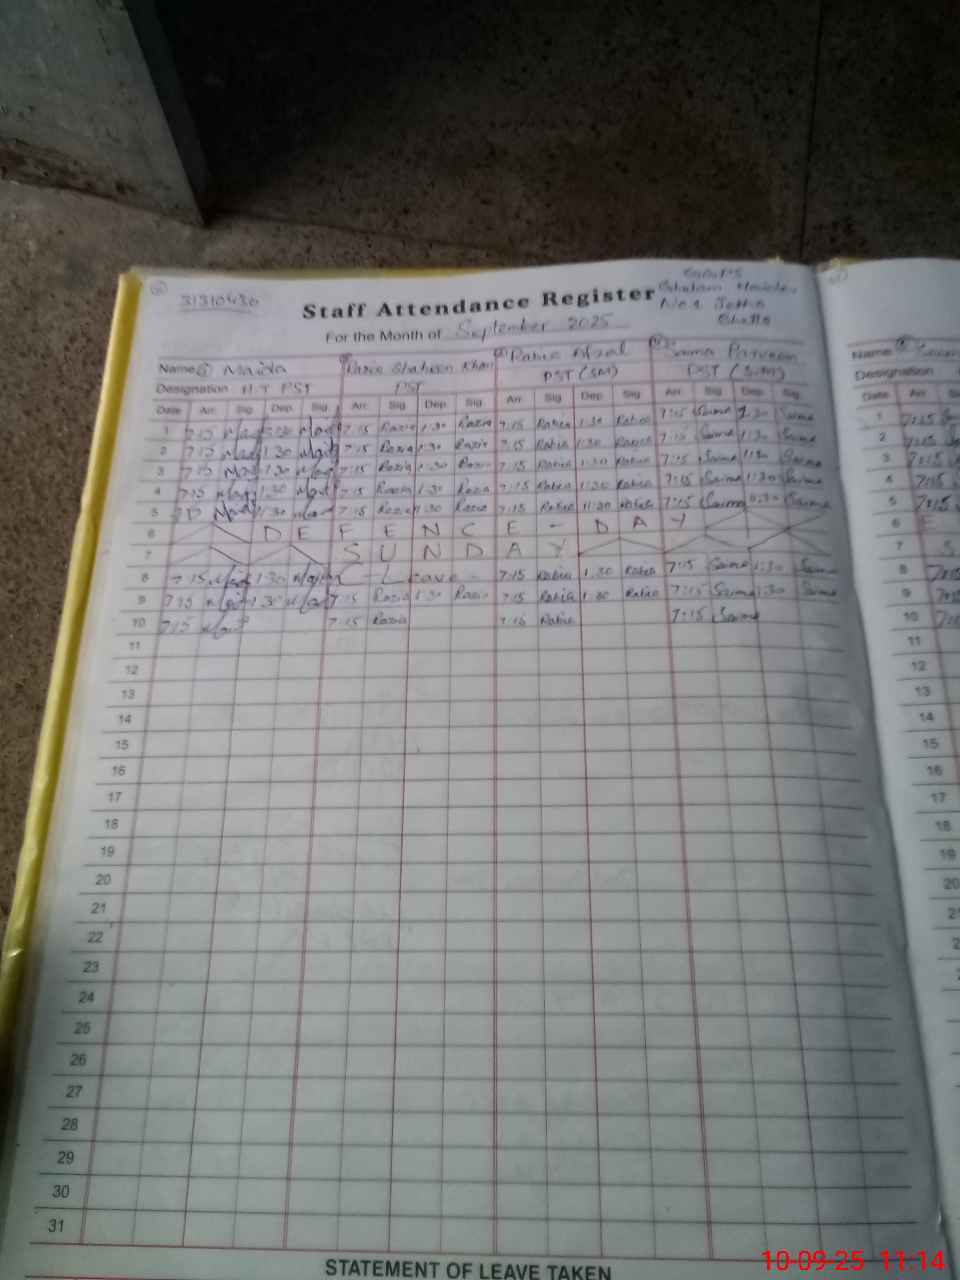 31310430
Staff Attendance Register
Ghulam Haider
No 1 Jotta
Bhutta
For the Month of September 2025
Name Maida Razia Shaheen Khan Rabia Afzal Saima Parveen
Designation H-T PST PST PST (SM) PST (SM)
Date Arr. Sig. Dep. Sig. Arr. Sig. Dep. Sig. Arr. Sig. Dep. Sig. Arr. Sig. Dep. Sig.
1 7:15 1:30 7:15 Razia 1:30 Razia 7:15 Rabia 1:30 Rabia 7:15 Saima 1:30 Saima
2 7:15 1:30 7:15 Razia 1:30 Razia 7:15 Rabia 1:30 Rabia 7:15 Saima 1:30 Saima
3 7:15 1:30 7:15 Razia 1:30 Razia 7:15 Rabia 1:30 Rabia 7:15 Saima 1:30 Saima
4 7:15 1:30 7:15 Razia 1:30 Razia 7:15 Rabia 1:30 Rabia 7:15 Saima 1:30 Saima
5 1:30 7:15 Razia 11:30 Razia 7:15 Rabia 11:30 Rabia 7:15 Saima Saima
6 DEFENCE - DAY
7 SUNDAY
8 7:15 1:30 C-Leave 7:15 Rabia 1:30 Rabia 7:15 Saima 1:30 Saima
9 7:15 1:30 7:15 Razia 1:30 Razia 7:15 Rabia 1:30 Rabia 7:15 Saima 1:30 Saima
10 7:15 7:15 Razia 7:15 Rabia 7:15 Saima
11
12
13
14
15
16
17
18
19
20
21
22
23
24
25
26
27
28
29
30
31
STATEMENT OF LEAVE TAKEN
Name
Designation
Date Arr.
1 7:15
2 7:15
3 7:15
4 7:15
5 7:15
6
7
8
9
10
11
12
13
14
15
16
17
18
19
20
10-09-25 11:14